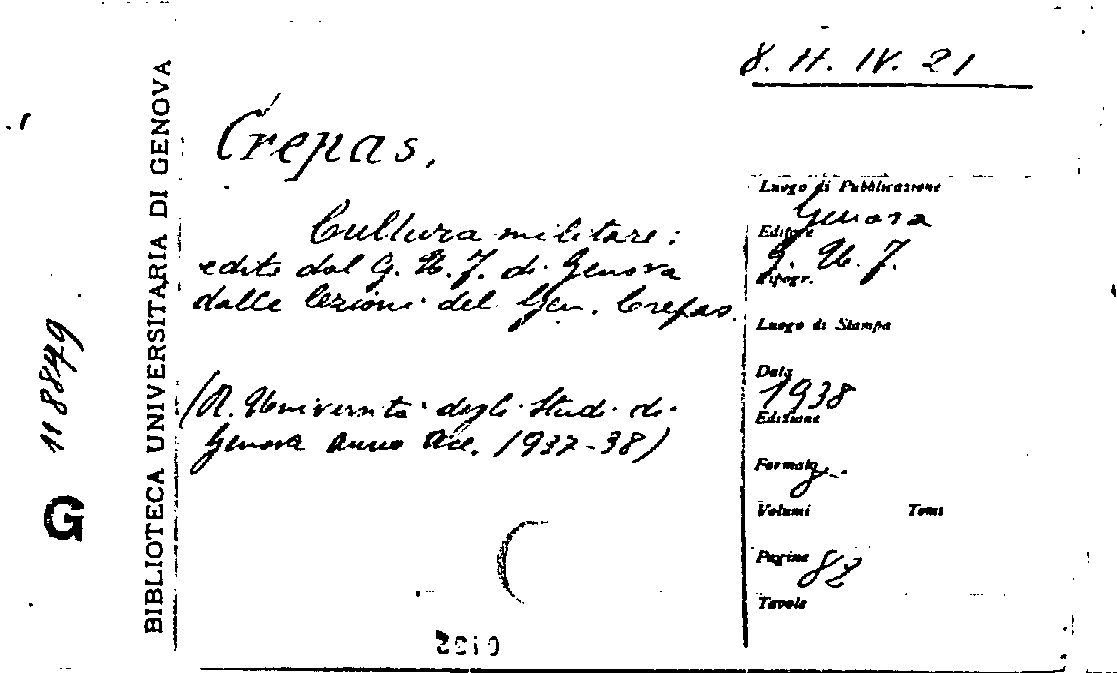 8. H. IV. 21
Crepas,
Cultura militare:
edito dal G. U. F. di Genova
dalle lezioni del Gen. Crepas.
(R. Università degli Studi di
Genova anno Acc. 1937-38)
Luogo di Pubblicazione
Genova
Editore
G. U. F.
Tipogr.
Luogo di Stampa
Data
1938
Edizione
Formato
Volumi Tomi
Pagine
82
Tavole
BIBLIOTECA UNIVERSITARIA DI GENOVA
G 118849